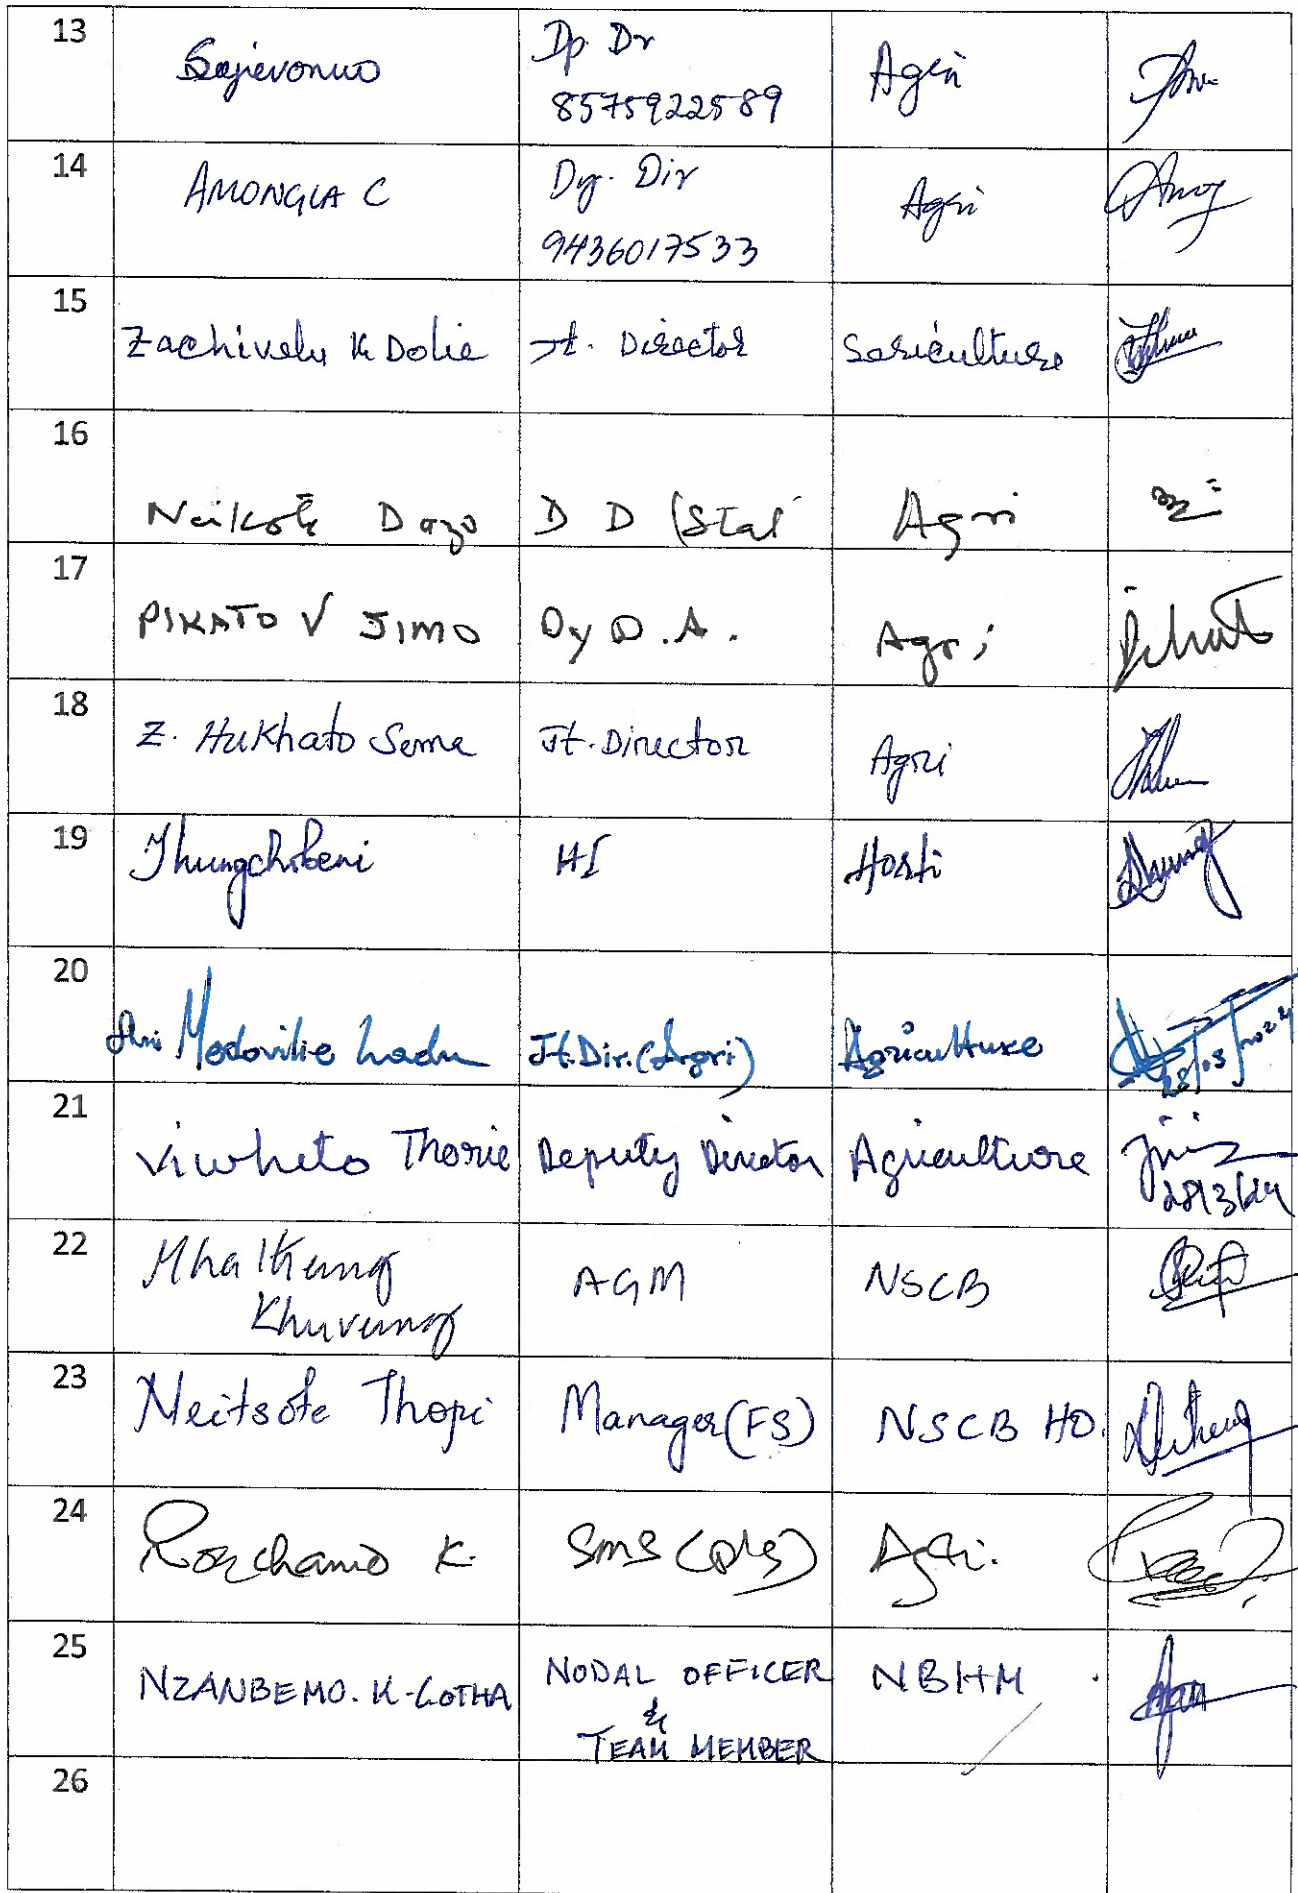 13 Sajievonuo Dp. Dr Agri
8575922589
14 AMONGLA C Dy. Dir Agri
9436017533
15 Zachivelu K Dolie Jt. Director Sericulture
16 Neikole Dozo D D (Stat Agri
17 PIKATO V JIMO Dy D.A. Agri
18 Z. Hukhato Sema Jt. Director Agri
19 Thungchibeni HI Horti
20 Shri Medovilie Jt. Dir. (Agri) Agriculture 28/03/2024
21 Viwheto Thorie Deputy Director Agriculture
28/3/24
22 Mhathung AGM NSCB
Khuvung
23 Neitsote Thopi Manager (FS) NSCB HO.
24 K. SMS Agri.
25 NZANBEMO. K-LOTHA NODAL OFFICER NBHM
&
TEAM MEMBER
26